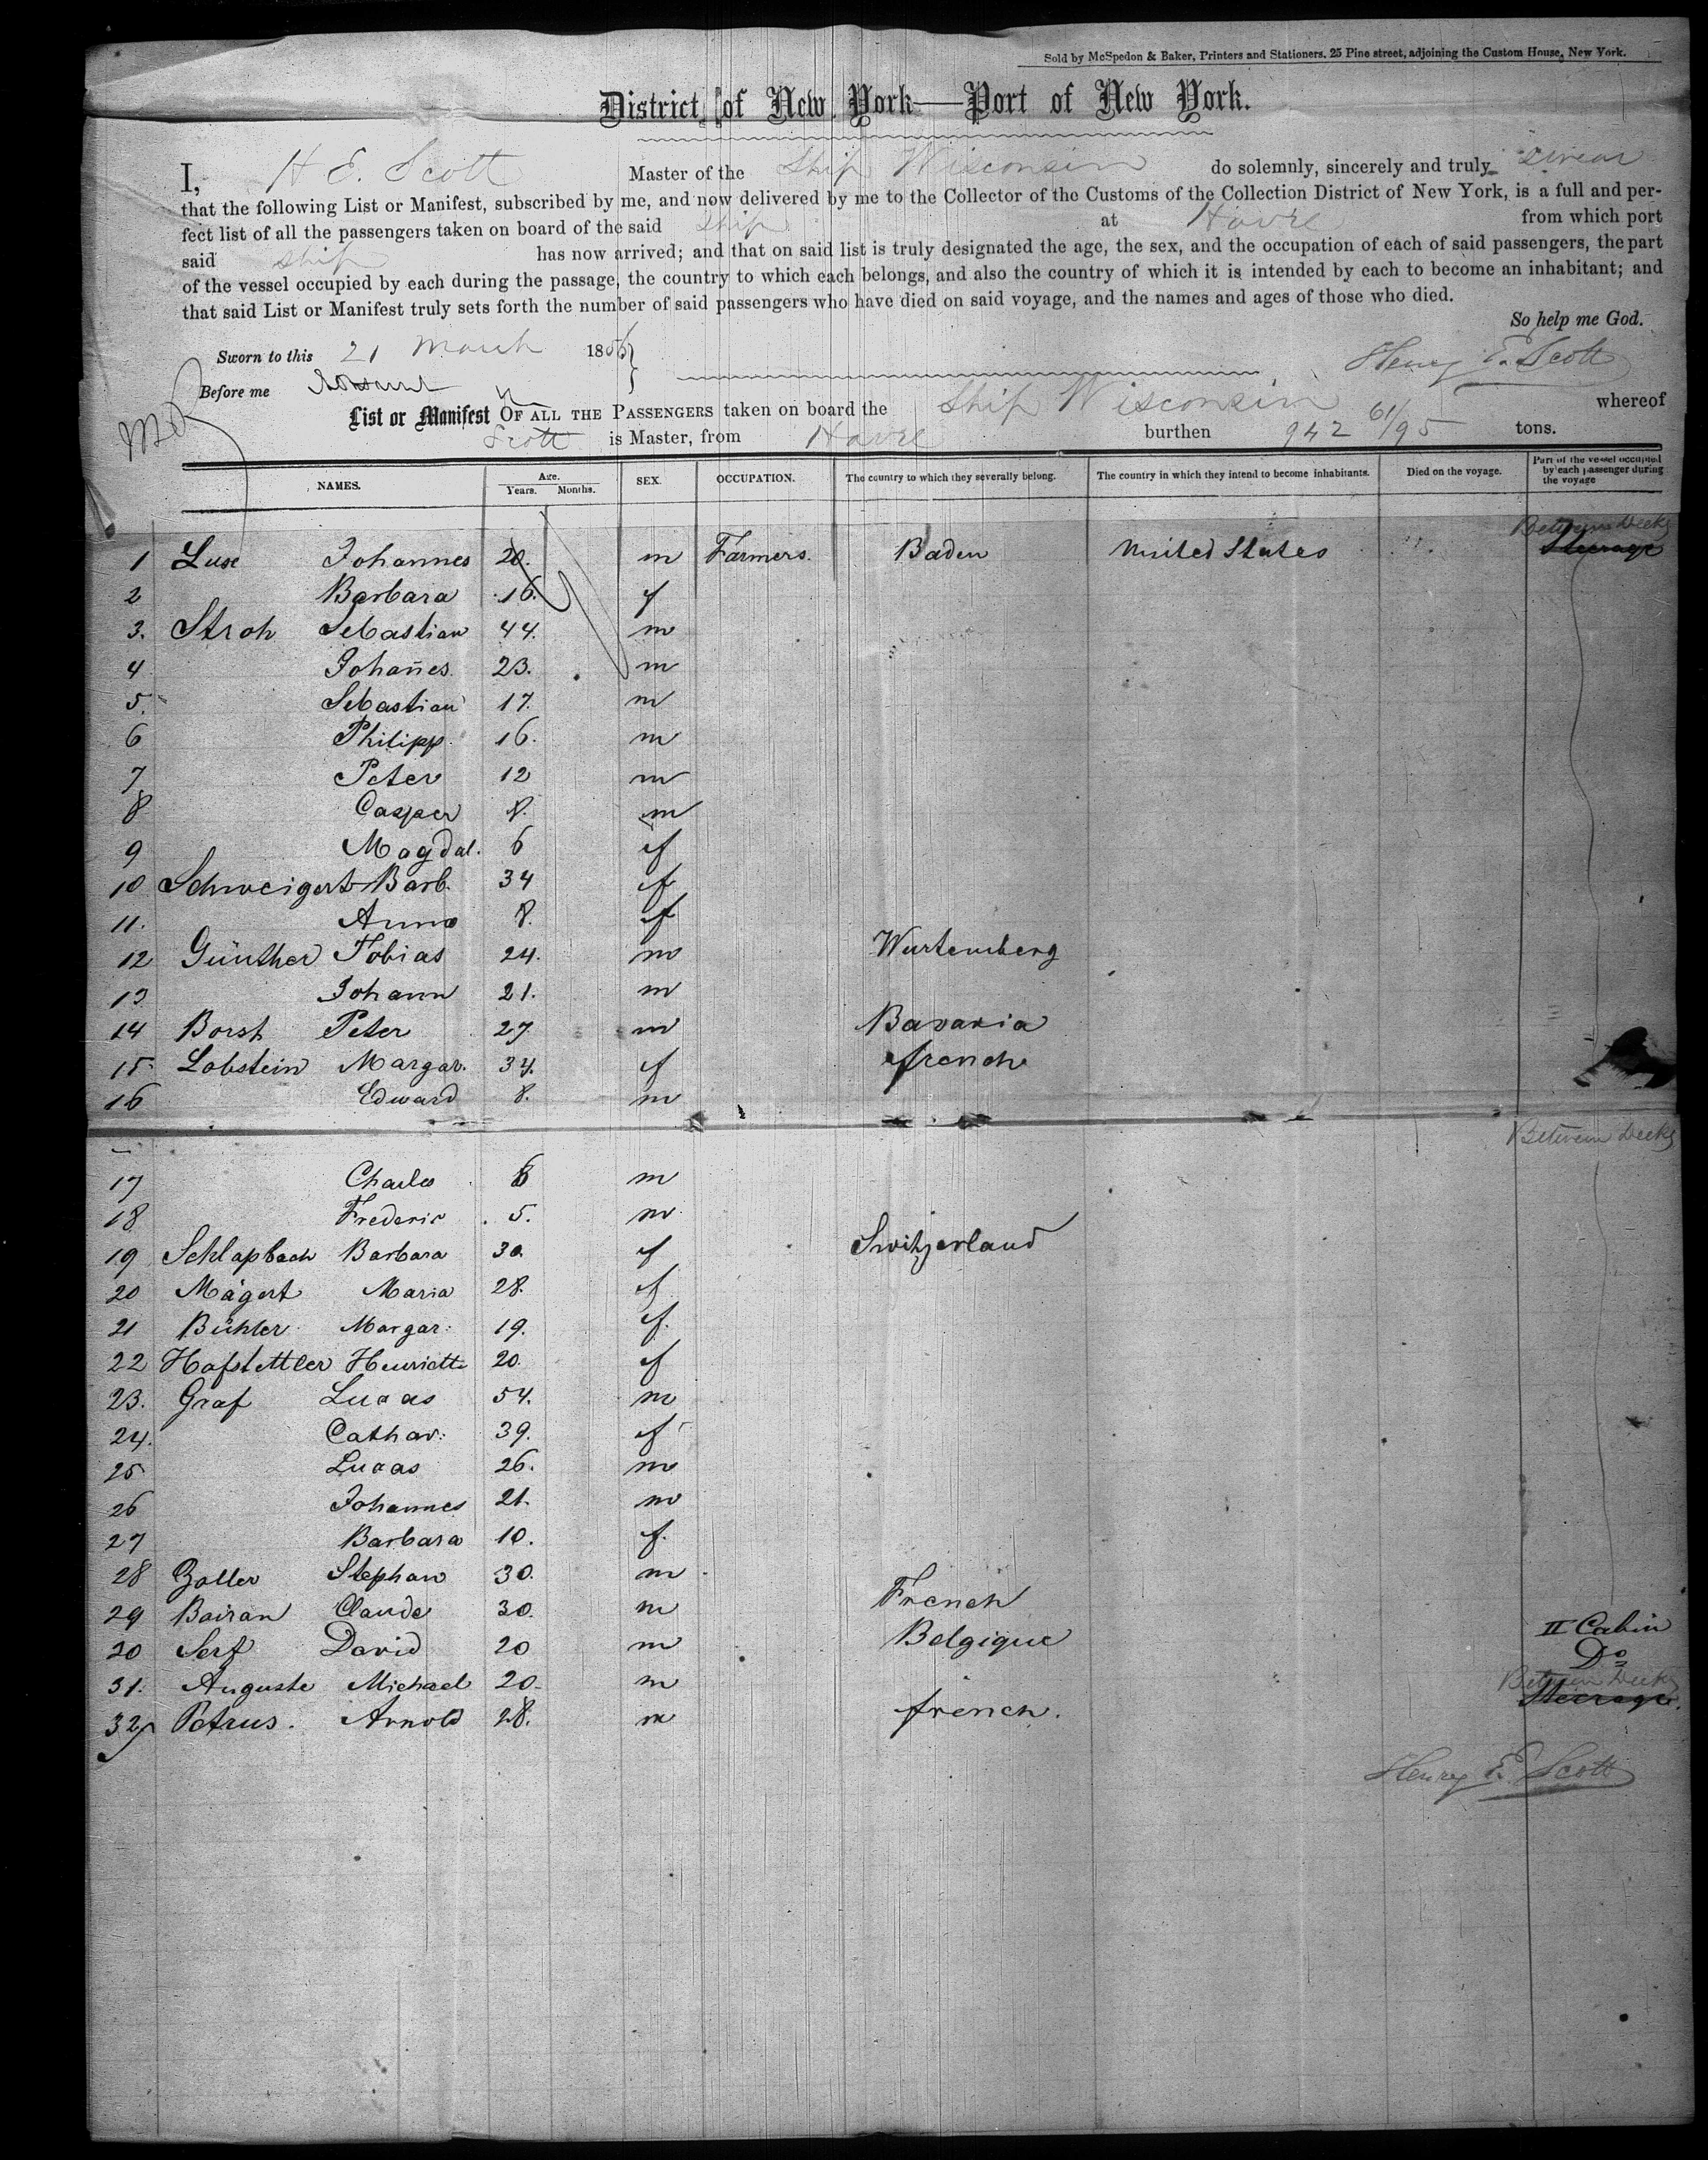 Sold by McSpedon & Baker, Printers and Stationers. 25 Pine street, adjoining the Custom House, New York.
District of New York—Port of New York.
I, H E. Scott Master of the Ship Wisconsin do solemnly, sincerely and truly swear
that the following List or Manifest, subscribed by me, and now delivered by me to the Collector of the Customs of the Collection District of New York, is a full and per-
fect list of all the passengers taken on board of the said Ship at Havre from which port
said Ship has now arrived; and that on said list is truly designated the age, the sex, and the occupation of each of said passengers, the part
of the vessel occupied by each during the passage, the country to which each belongs, and also the country of which it is intended by each to become an inhabitant; and
that said List or Manifest truly sets forth the number of said passengers who have died on said voyage, and the names and ages of those who died.
So help me God.
Sworn to this 21 March 1856
Henry E. Scott
Before me
List or Manifest OF ALL THE PASSENGERS taken on board the Ship Wisconsin whereof
Scott is Master, from Havre burthen 942 61/95 tons.
NAMES. Age. Years. Months. SEX. OCCUPATION. The country to which they severally belong. The country in which they intend to become inhabitants. Died on the voyage. Part of the vessel occupied by each passenger during the voyage
Between Decks
1 Luse Johannes 20. m Farmers. Baden United States Steerage
2 Barbara 16. f
3. Stroh Sebastian 44. m
4 Johañes. 23. m
5. Sebastian 17. m
6 Philipp. 16. m
7 Peter 12 m
8 Casper 8. m
9 Magdal. 6 f
10 Schweigert Barb. 34 f
11. Anna 8. f
12 Günther Tobias 24. m Wurtemberg
13 Johann 21. m
14 Borst Peter 27 m Bavaria
15 Lobstein Margar. 34. f french
16 Edward 8. m
Between Decks
17 Charles 6 m
18 Frederic 5. m
19 Schlapbach Barbara 30. f Switzerland
20 Mägert Maria 28. f
21 Bühler Margar: 19. f.
22 Hofstettler Henriette 20. f
23. Graf Lucas 54. m
24. Cathar: 39. f
25 Lucas 26. m
26 Johannes 21. m
27 Barbara 10. f.
28 Zoller Stephan 30. m
29 Bairan Claude 30. m French II Cabin
30 Serf David 20 m Belgique Do
Between Decks
31. Auguste Michael 20. m Steerage.
32 Petrus. Arnold 28. m french.
Henry E. Scott